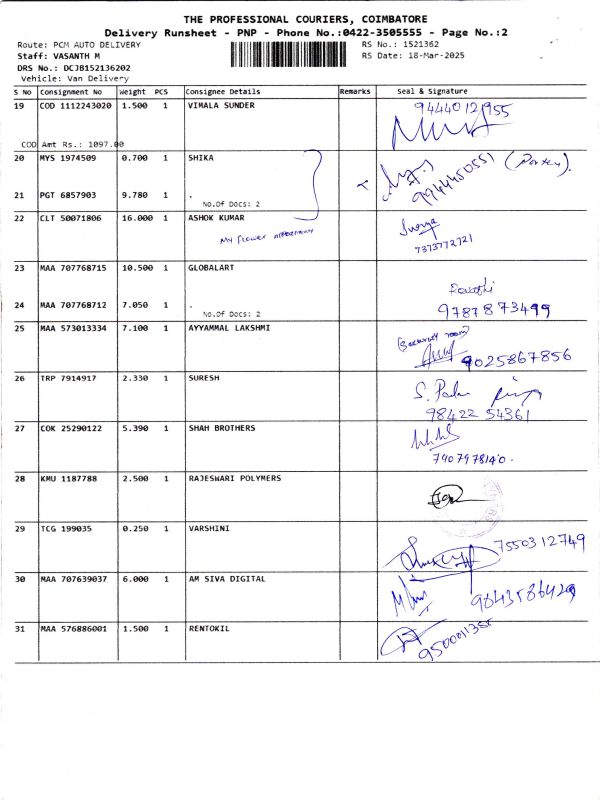 THE PROFESSIONAL COURIERS, COIMBATORE
Delivery Runsheet - PNP - Phone No.:0422-3505555 - Page No.:2
Route: PCM AUTO DELIVERY RS No.: 1521362
Staff: VASANTH M RS Date: 18-Mar-2025
DRS No.: DCJB152136202
Vehicle: Van Delivery
S No Consignment No Weight PCS Consignee Details Remarks Seal & Signature
19 COD 1112243020 1.500 1 VIMALA SUNDER 9444012955
COD Amt Rs.: 1097.00
20 MYS 1974509 0.700 1 SHIKA 9944450551
21 PGT 6857903 9.780 1 .
No.Of Docs: 2
22 CLT 50071806 16.000 1 ASHOK KUMAR
My flower appartment 7373772721
23 MAA 707768715 10.500 1 GLOBALART
24 MAA 707768712 7.050 1 . 9787873499
No.Of Docs: 2
25 MAA 573013334 7.100 1 AYYAMMAL LAKSHMI
(Security room) 9025867856
26 TRP 7914917 2.330 1 SURESH
98422 54361
27 COK 25290122 5.390 1 SHAH BROTHERS
7907978140.
28 KMU 1187788 2.500 1 RAJESWARI POLYMERS
29 TCG 199035 0.250 1 VARSHINI 7550312749
30 MAA 707639037 6.000 1 AM SIVA DIGITAL
31 MAA 576886001 1.500 1 RENTOKIL